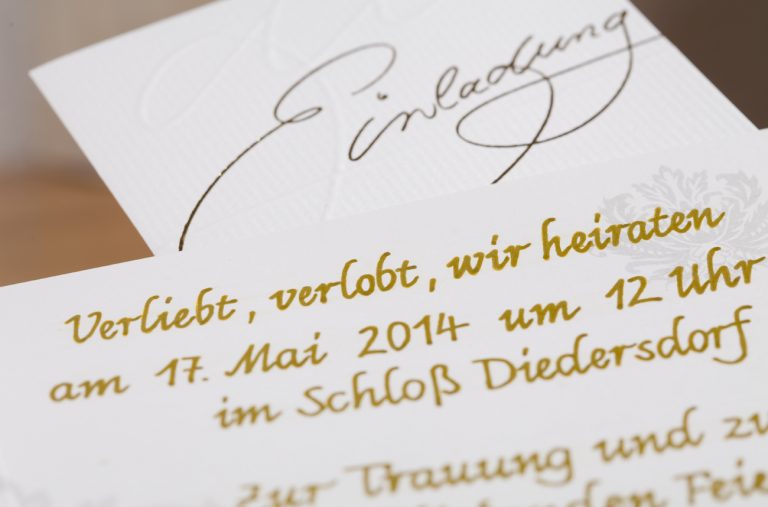 Einladung
Verliebt, verlobt, wir heiraten
am 17. Mai 2014 um 12 Uhr
im Schloß Diedersdorf
zur Trauung und